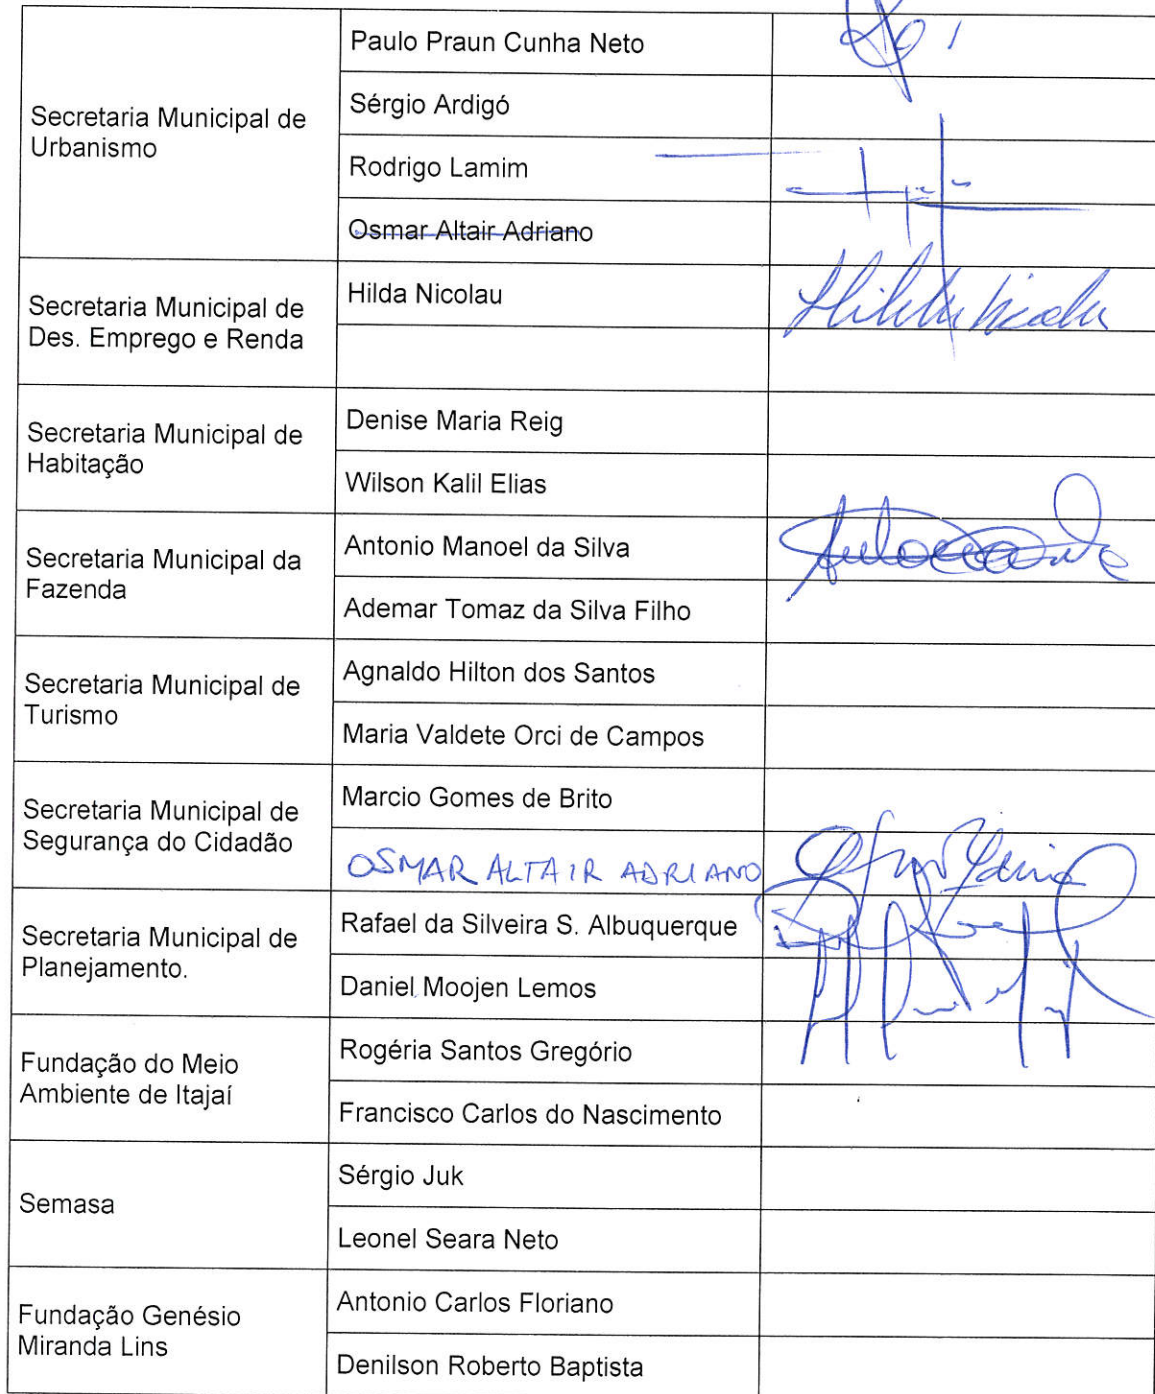 Secretaria Municipal de
Urbanismo
Paulo Praun Cunha Neto
Sérgio Ardigó
Rodrigo Lamim
Osmar Altair Adriano
Secretaria Municipal de
Des. Emprego e Renda
Hilda Nicolau
Hilda Nicolau
Secretaria Municipal de
Habitação
Denise Maria Reig
Wilson Kalil Elias
Secretaria Municipal da
Fazenda
Antonio Manoel da Silva
Ademar Tomaz da Silva Filho
Secretaria Municipal de
Turismo
Agnaldo Hilton dos Santos
Maria Valdete Orci de Campos
Secretaria Municipal de
Segurança do Cidadão
Marcio Gomes de Brito
OSMAR ALTAIR ADRIANO
Secretaria Municipal de
Planejamento.
Rafael da Silveira S. Albuquerque
Daniel Moojen Lemos
Fundação do Meio
Ambiente de Itajaí
Rogéria Santos Gregório
Francisco Carlos do Nascimento
Semasa
Sérgio Juk
Leonel Seara Neto
Fundação Genésio
Miranda Lins
Antonio Carlos Floriano
Denilson Roberto Baptista